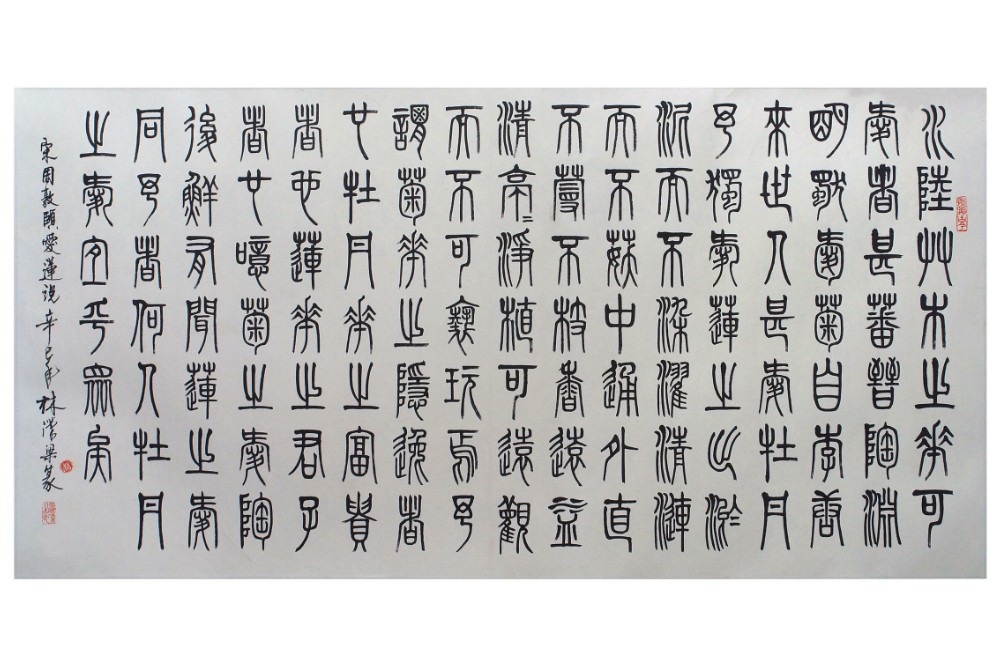 水陸艸木之華可
愛者甚蕃晉陶淵
明獨愛菊自李唐
來世人甚愛牡丹
予獨愛蓮之出淤
泥而不染濯清漣
而不妖中通外直
不蔓不枝香遠益
清亭〻淨植可遠觀
而不可褻玩焉予
謂菊華之隱逸者
也牡丹華之富貴
者也蓮華之君子
者也噫菊之愛陶
後鮮有聞蓮之愛
同予者何人牡丹
之愛宜乎眾矣
宋周敦頤愛蓮說辛巳年林梁篆